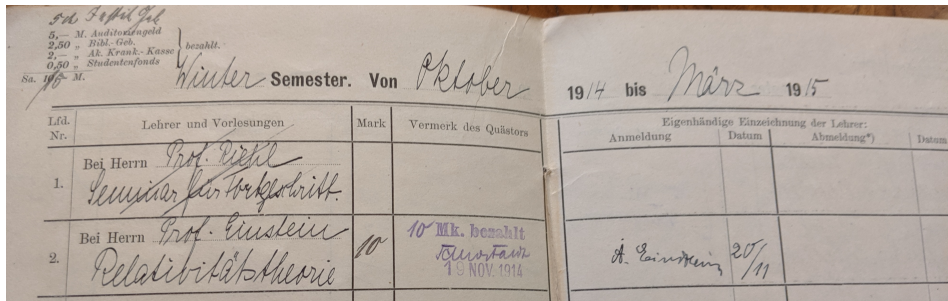 5,— M. Auditoriengeld
2,50 „ Bibl.-Geb.
2,— „ Ak. Krank.-Kasse
0,50 „ Studentenfonds
bezahlt.
Sa. M.
Winter Semester. Von Oktober 1914 bis März 1915
Lfd. Nr. Lehrer und Vorlesungen Mark Vermerk des Quästors
Eigenhändige Einzeichnung der Lehrer:
Anmeldung Datum Abmeldung*) Datum
1. Bei Herrn Prof. Riehl
Seminar für Fortgeschritt.
2. Bei Herrn Prof. Einstein
Relativitätstheorie
10
10 Mk. bezahlt
19 NOV. 1914
A. Einstein 20/11